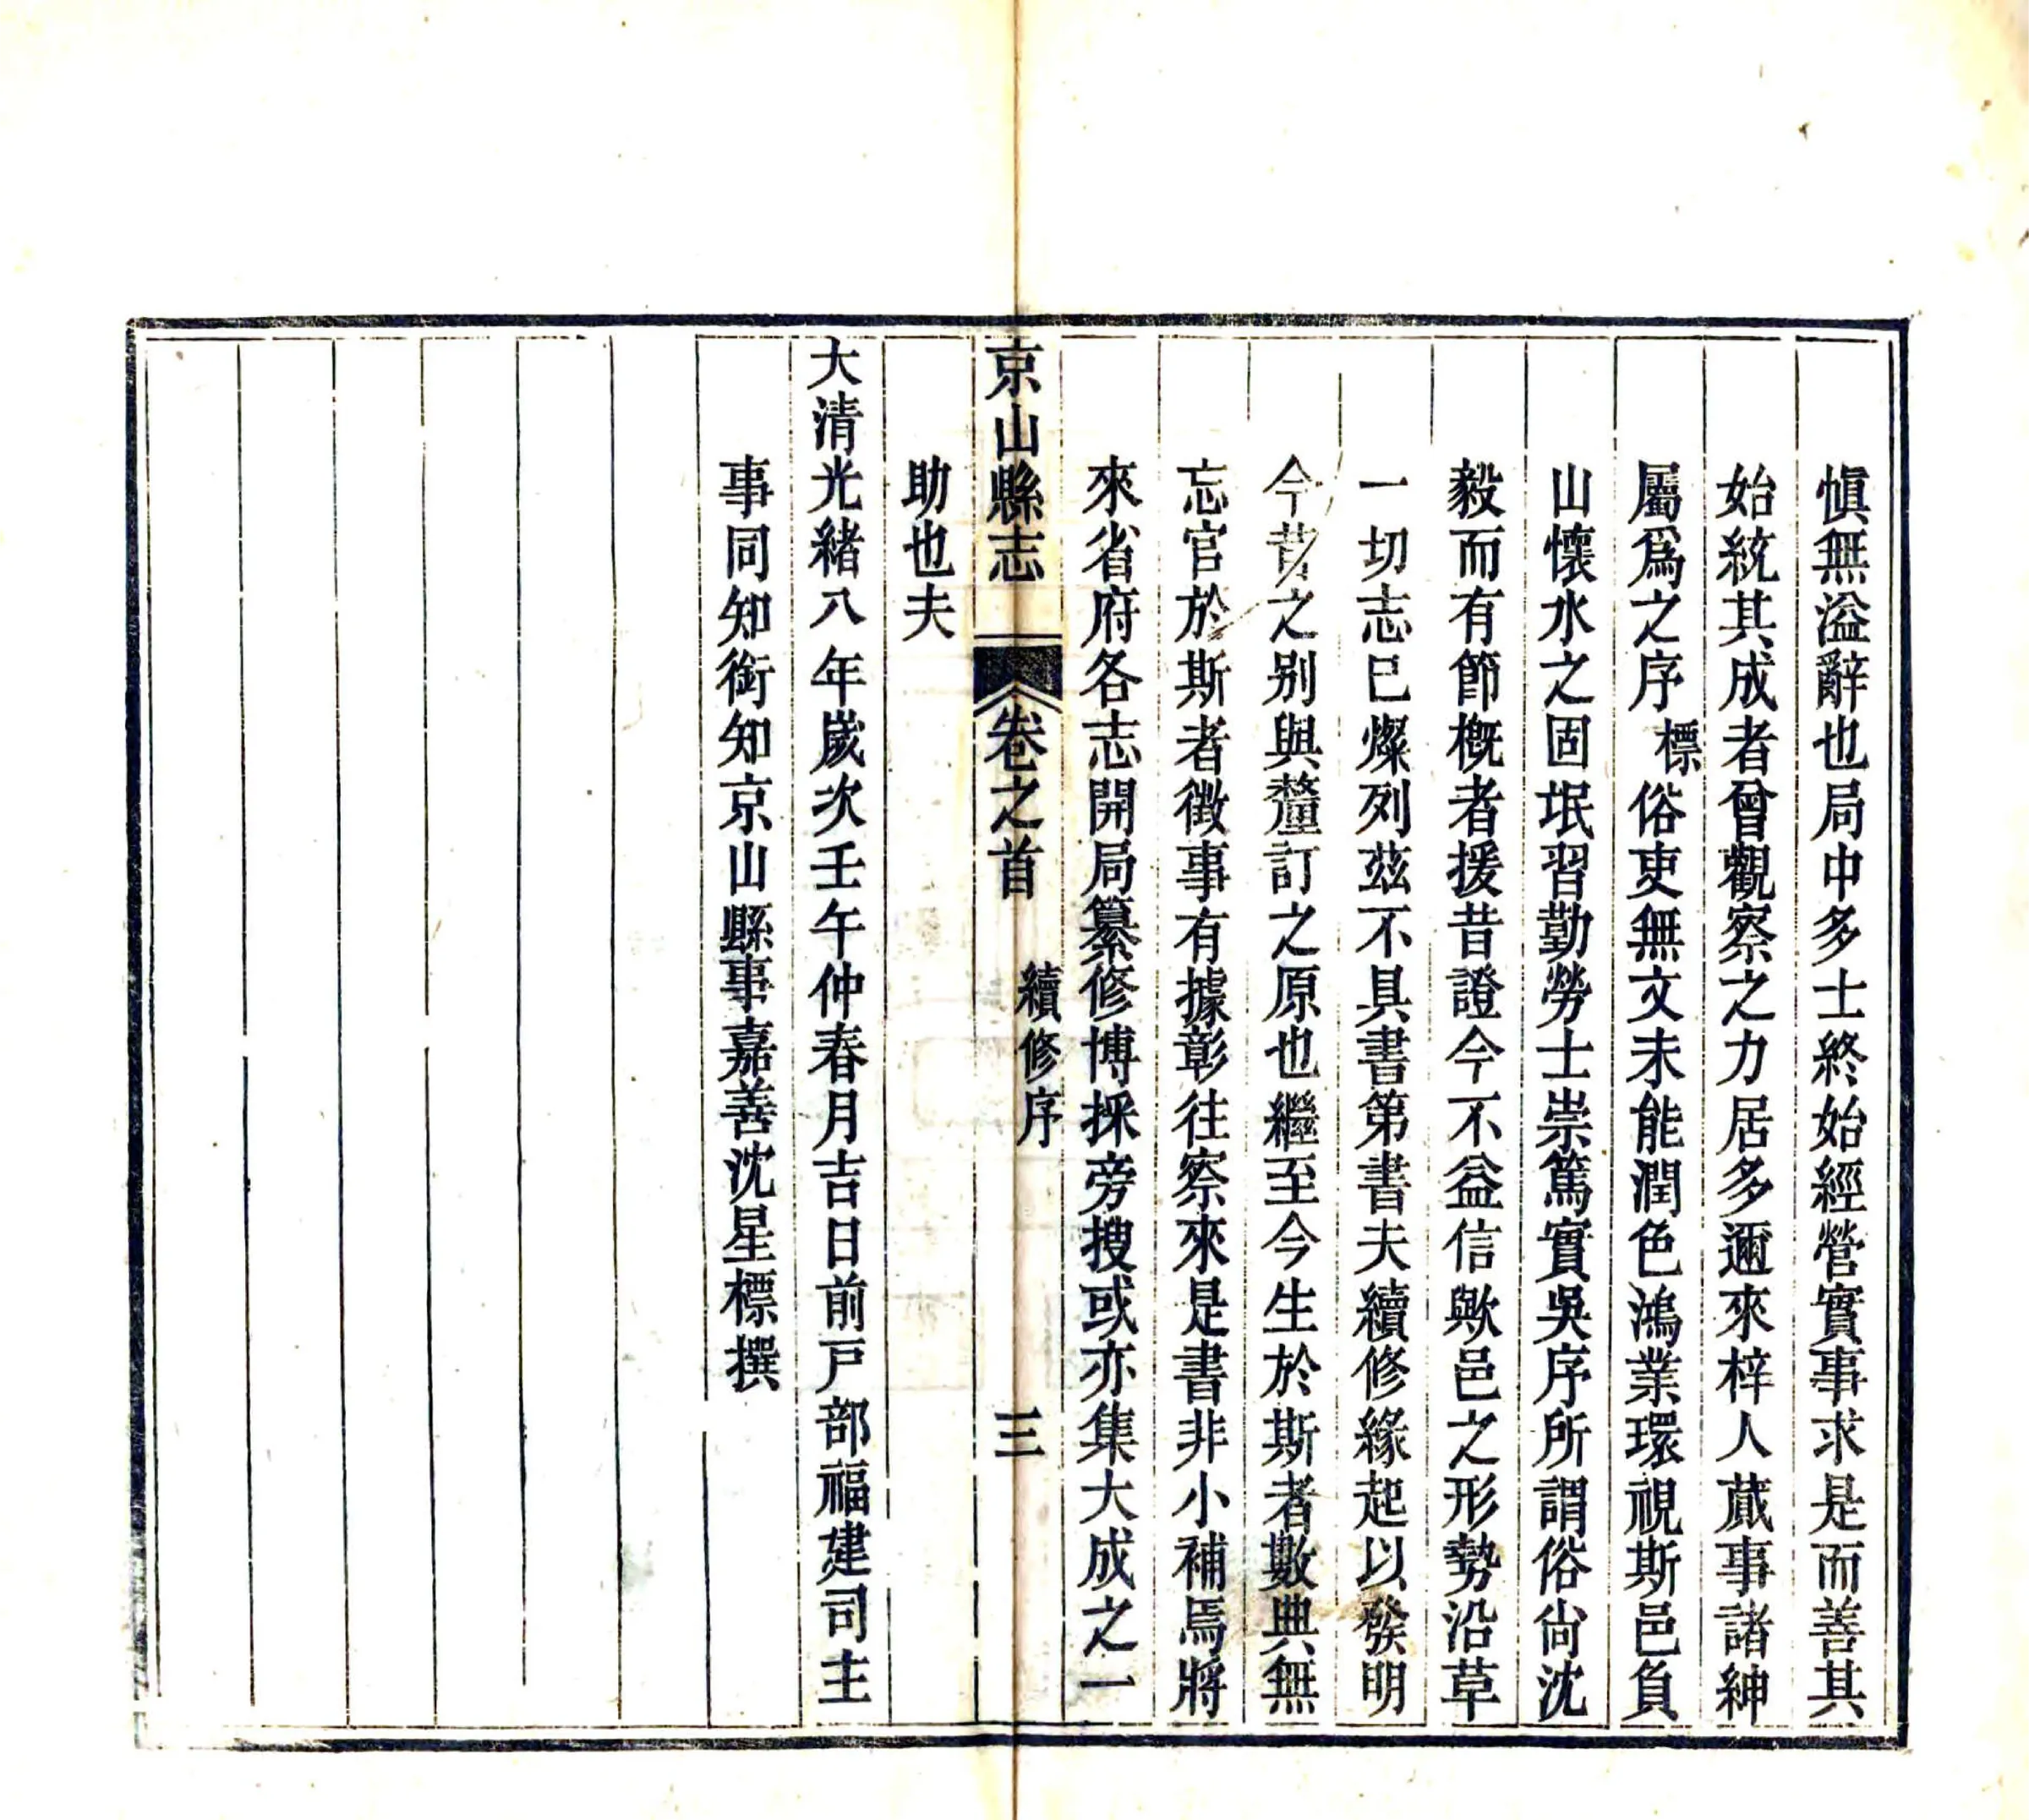 愼無溢辭也局中多士終始經營實事求是而善其
始統其成者曾觀察之力居多邇來梓人蕆事諸紳
屬爲之序標俗吏無文未能潤色鴻業環視斯邑負
山懷水之固氓習勤勞士崇篤實吳序所謂俗尙沈
毅而有節槪者援昔證今不益信歟邑之形勢沿草
一切志巳燦列茲不具書第書夫續修緣起以發明
今昔之别與釐訂之原也繼至今生於斯者數典無
忘官於斯者徵事有據彰往察來是書非小補焉將
來省府各志開局纂修博採旁搜或亦集大成之一
京山縣志 卷之首 續修序 三
助也夫
大清光緒八年歲次壬午仲春月吉日前戸部福建司主
事同知銜知京山縣事嘉善沈星標撰